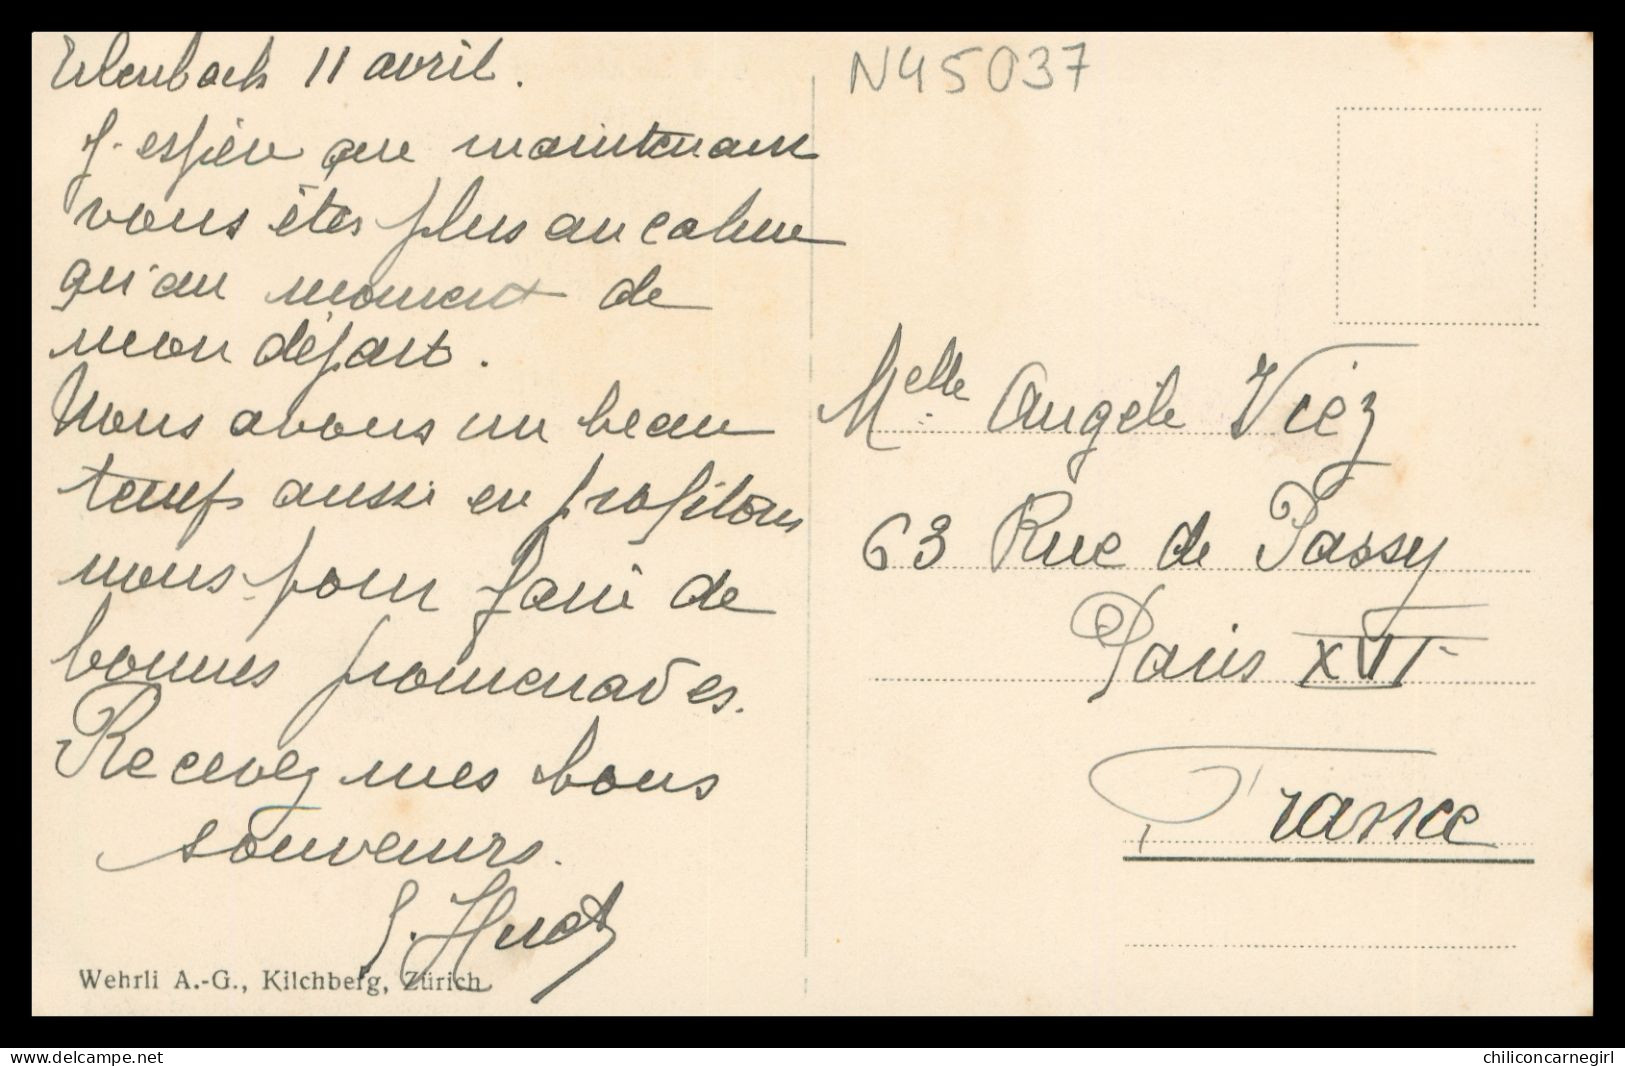 Erlenbach 11 avril.
J'espère que maintenant
vous êtes plus au calme
qu'au moment de
mon départ.
Nous avons un beau
temps aussi en profitons
nous pour faire de
bonnes promenades.
Recevez mes bons
souvenirs.
Wehrli A.-G., Kilchberg, Zürich
N45037
Melle Angèle Viéz
63 Rue de Passy
Paris XVI
France
delcampe.net
chiliconcarnegirl